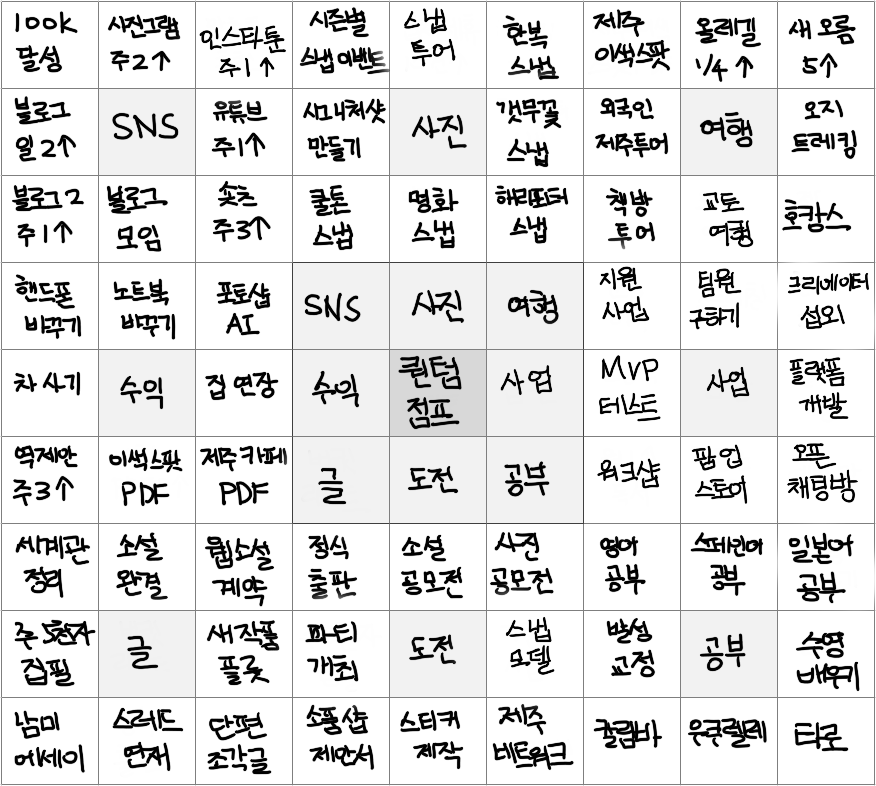 100K 사진그램 인스타툰 시즌별 스냅 한복 제주 올레길 새오름
달성 주2↑ 주1↑ 스냅이벤트 투어 스냅 이색스팟 1/4↑ 5↑
블로그 SNS 유튜브 시그니처샷 사진 갯무꽃 외국인 여행 오지
일2↑ 주1↑ 만들기 스냅 제주투어 트레킹
블로그2 블로그 숏츠 쿨톤 명화 해리포터 책방 교토 호캉스
주1↑ 모임 주3↑ 스냅 스냅 스냅 투어 여행
핸드폰 노트북 포토샵 SNS 사진 여행 지원 팀원 크리에이터
바꾸기 바꾸기 AI 사업 구하기 섭외
차 사기 수익 집 연장 수익 퀀텀 사업 MVP 사업 플랫폼
점프 테스트 개발
역제안 이색스팟 제주카페 글 도전 공부 워크샵 팝업 오픈
주3↑ PDF PDF 스토어 채팅방
세계관 소설 웹소설 정식 소설 사진 영어 스페인어 일본어
정리 완결 계약 출판 공모전 공모전 공부 공부 공부
주5천자 글 새작품 파티 도전 스냅 발성 공부 수영
집필 플롯 개최 모델 교정 배우기
남미 스레드 단편 소품샵 스티커 제주 칼림바 우쿠렐레 타로
에세이 연재 조각글 제안서 제작 네트워크